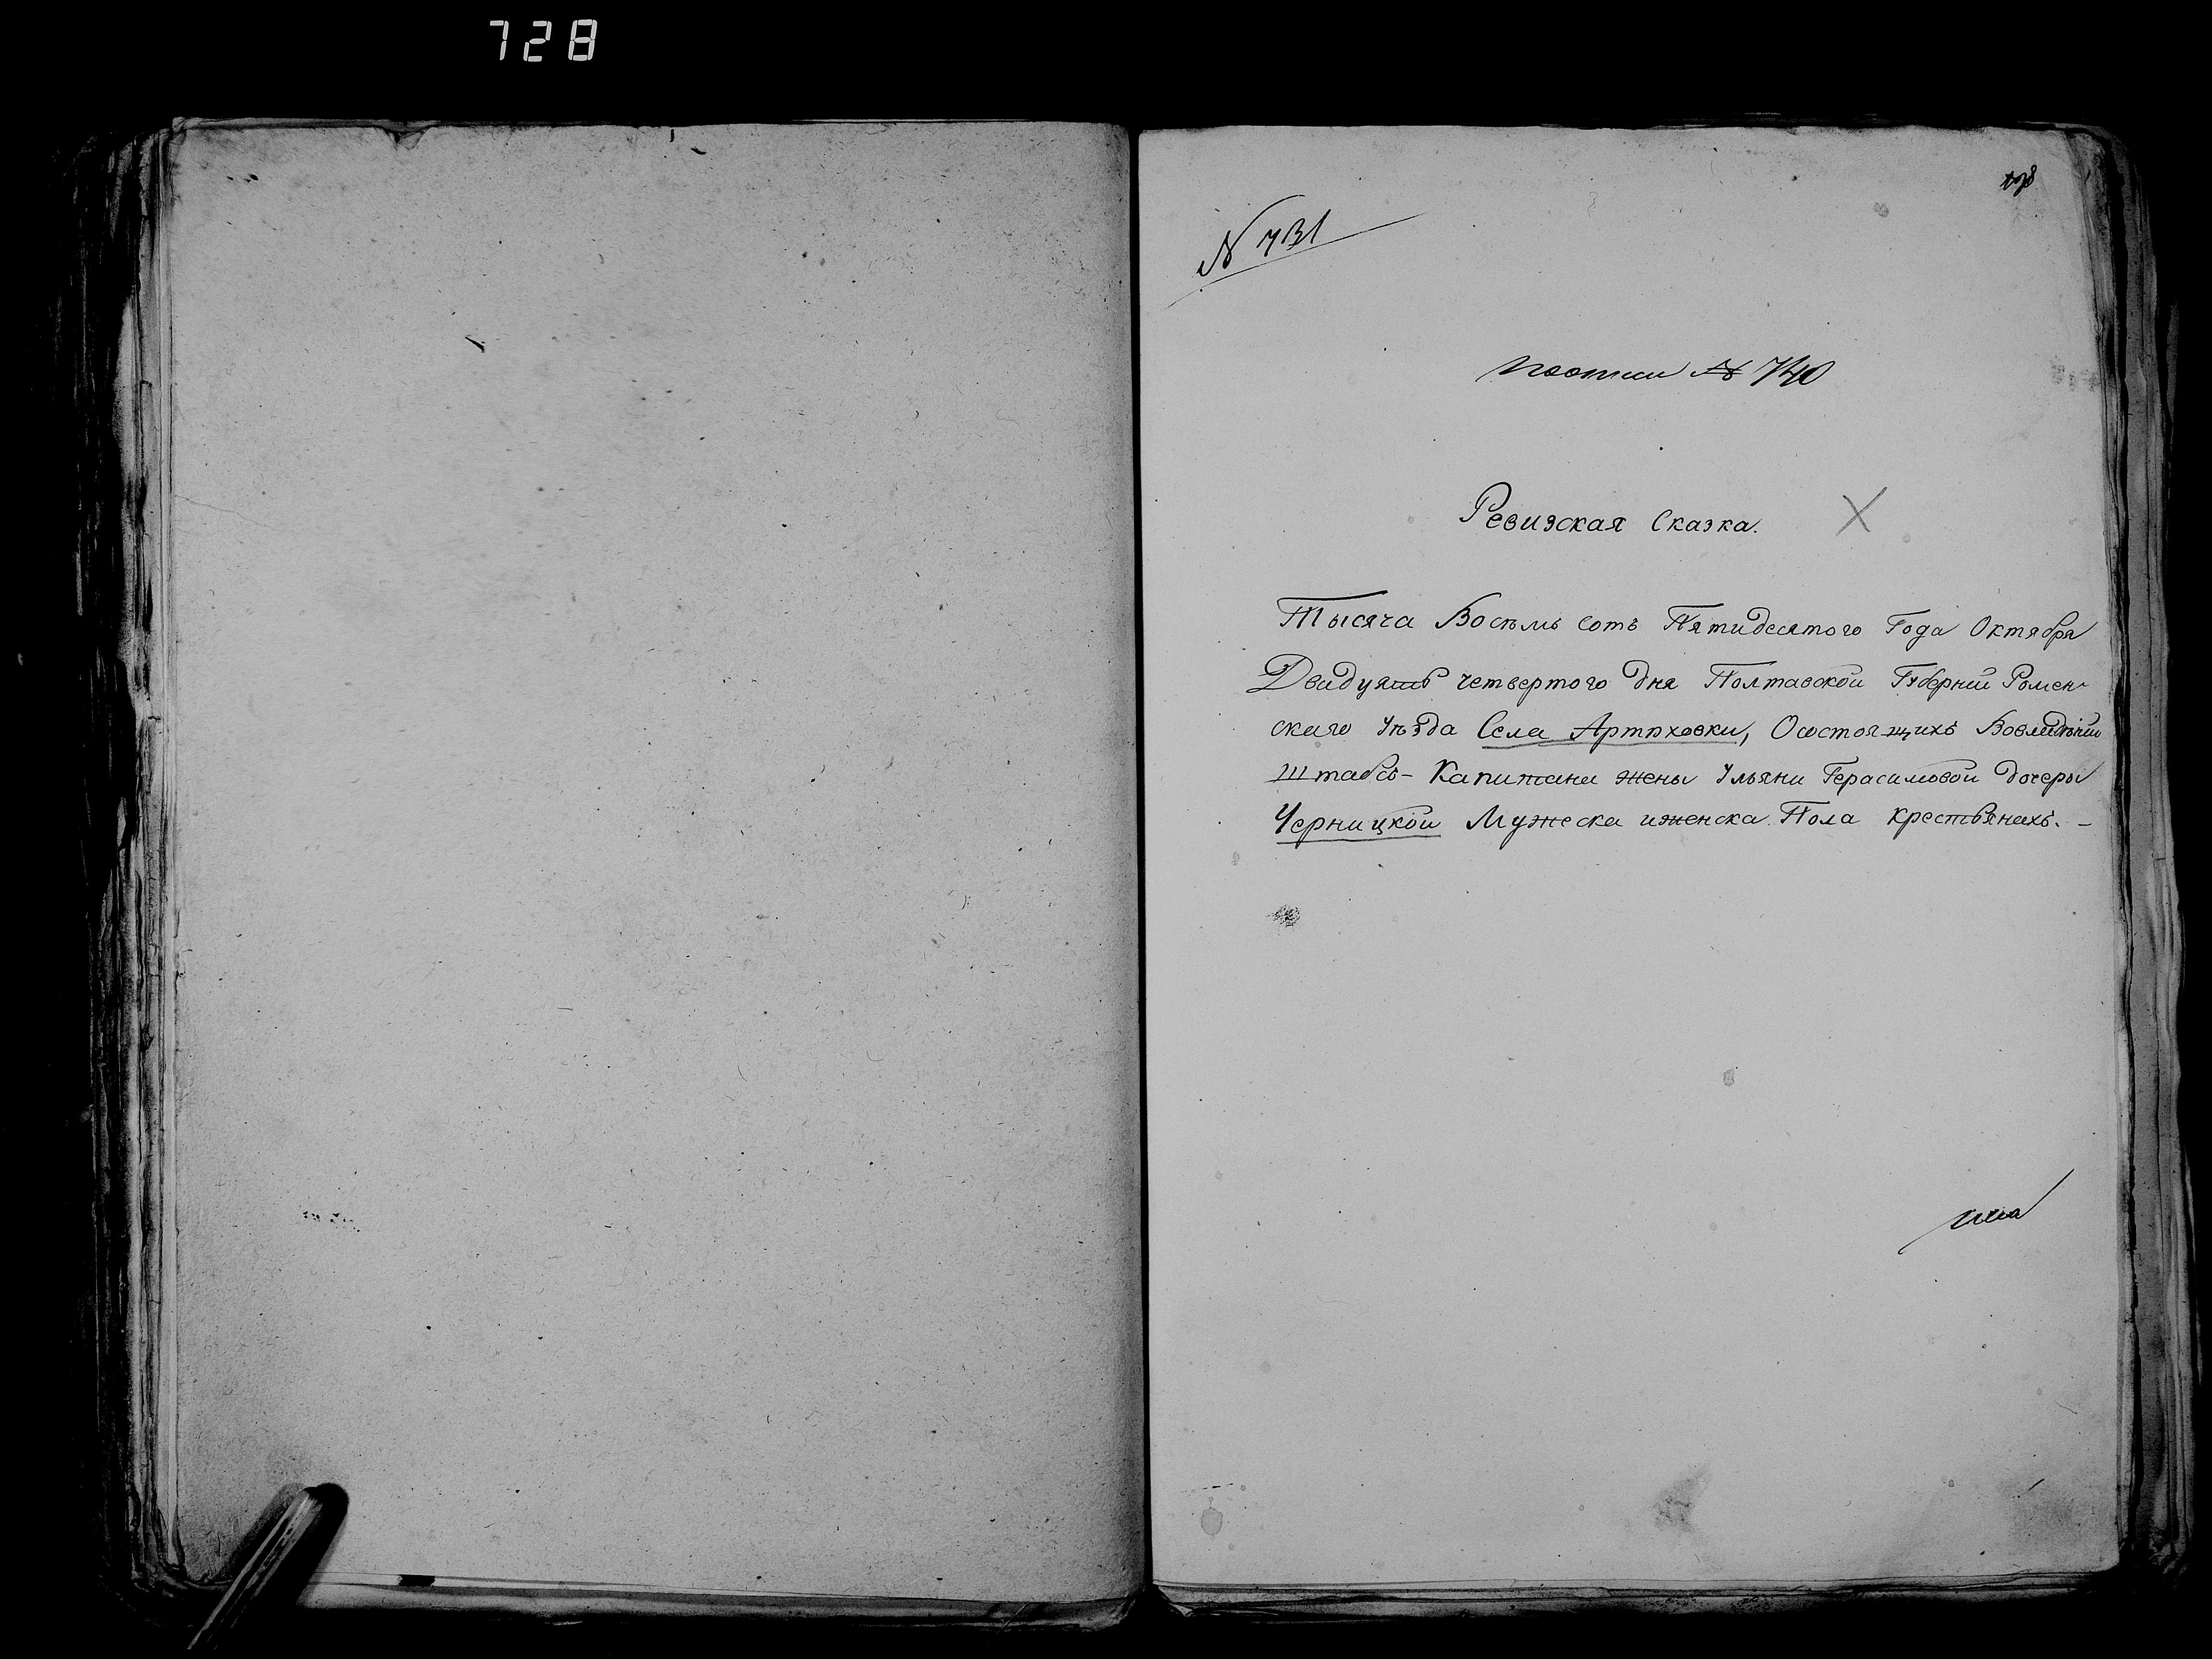 728
N 731
почтии № 740
Ревизская Сказка.
Тысяча Восемь сотъ Пятидесятого Года Октября
Двадцять четвертого дня Полтавской Губерніи Ромен-
скаго Уѣзда Села Артюховки, Осостоящихъ Вовладѣніи
Штабсъ-Капитани жены Ульяни Герасимовой дочеры
Черницкой Мужеска иженска Пола крестьянахъ. -